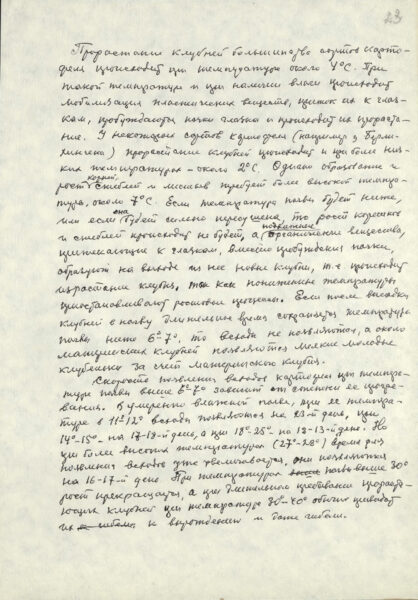 23
Прорастание клубней большинства сортов карто-
феля происходит при температуре около 4°С. При
такой температуре и при наличии влаги происходит
мобилизация пластических веществ, приток их к глаз-
кам, пробуждаются почки глазка и происходит их прораста-
ние. У некоторых сортов картофеля (например у Берли-
хингена) прорастание клубней происходит и при более низ-
ких температурах - около 2°С. Однако образование и
рост корней, стеблей и листьев требует более высокой темпера-
туры, около 7°С. Если температура почвы будет ниже,
или если она будет сильно пересушена, то рост корешков
и стеблей происходить не будет, а подвижные органические вещества,
притекающие к глазкам, вместо пробуждения почки,
образуют на выходе из нее новые клубни, т.е. происходит
израстание клубня, так как пониженные температуры
приостанавливают ростовые процессы. Если после высадки
клубней в почву длительное время сохраняется температура
почвы ниже 6°-7°, то всходы не появляются, а около
материнских клубней появляются мелкие молодые
клубеньки за счет материнского клубня.
Скорость появления всходов картофеля при темпера-
туре почвы выше 6°-7° зависит от степени ее прогре-
вания. В умеренно влажной почве, при ее темпера-
туре в 11°-12° всходы появляются на 23-й день, при
14°-15° на 17-18-й день, а при 18°-25° на 12-13-й день. Но
при более высоких температурах (27°-28°) время для
появления всходов уже увеличивается, они появляются
на 16-17-й день. При температуре почвы выше 30°
рост прекращается, а при длительном пребывании прораста-
ющих клубней при температуре 30°-40° обычно приводит
их к вырождению и даже гибели.